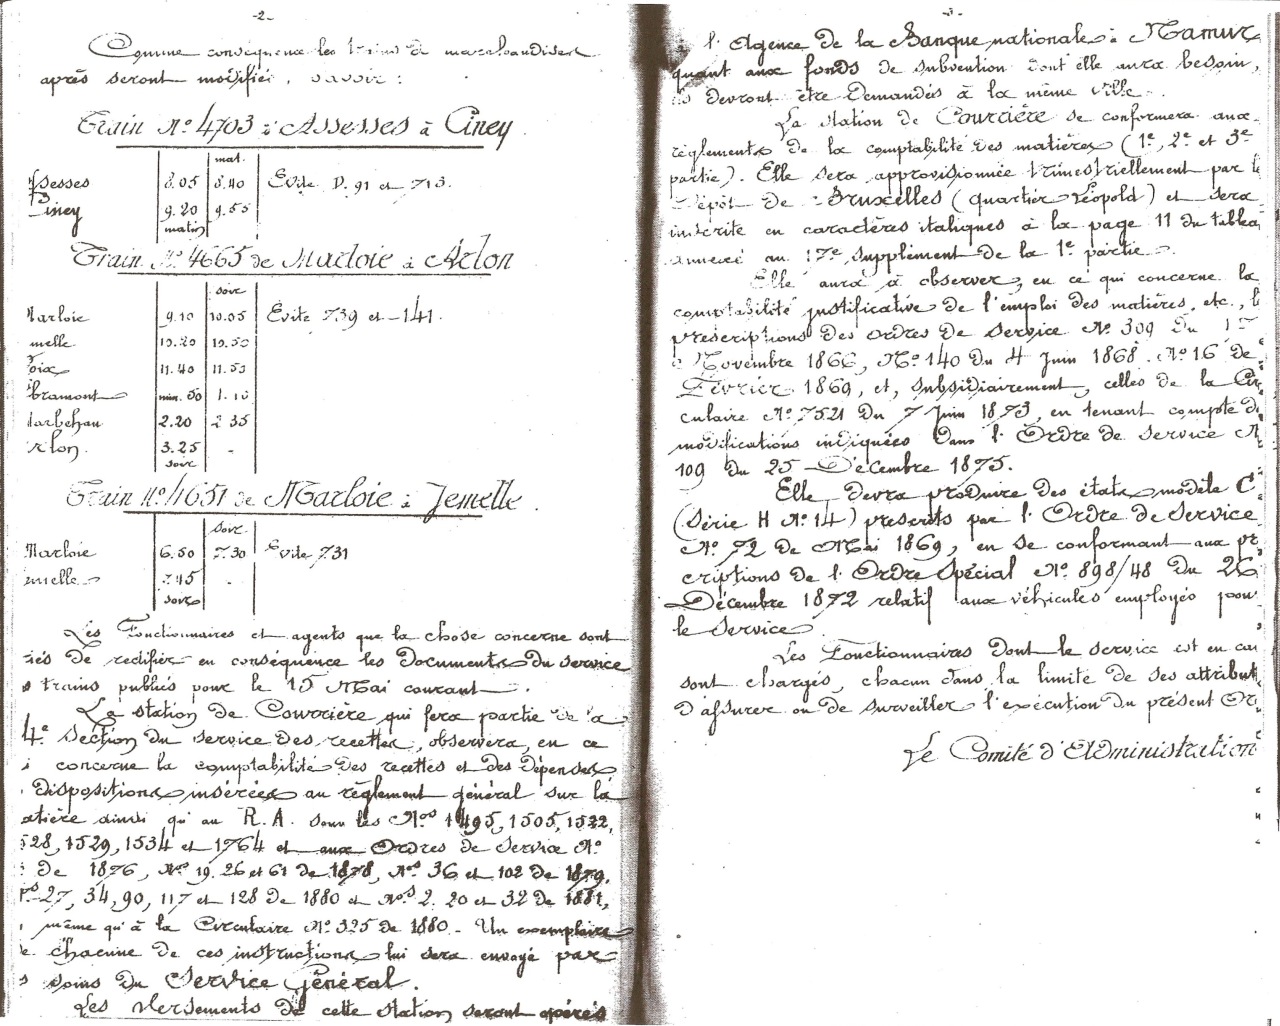 -2-
Comme conséquence les trains de marchandises
après seront modifiés, savoir :
Train No 4703 d'Assesses à Ciney.
mat.
ssesses 8.05 8.40 Évite D. 91 et 713.
Ciney 9.20 9.55
matin
Train No 4665 de Marloie à Arlon
soir
Marloie 9.10 10.05 Évite 739 et 141.
melle 10.20 10.50
oix 11.40 11.53
bramont min. 50 1.10
arbehan 2.20 2 35
rlon. 3.25 -
soir
Train No 4651 de Marloie à Jemelle.
soir
Marloie 6.50 7.30 Évite 731
melle 7.45 -
soir
Les Fonctionnaires et agents que la chose concerne sont
iés de rectifier en conséquence les documents du service
s trains publiés pour le 15 Mai courant.
La station de Courrière, qui fera partie de la
4e section du service des recettes, observera, en ce
i concerne la comptabilité des recettes et des dépenses
dispositions insérées au règlement général sur la
atière ainsi qu'au R.A. sous les Nos 1495, 1505, 1522,
528, 1529, 1534 et 1764 et aux Ordres de Service No
de 1876, Nos 19, 26 et 61 de 1878, Nos 36 et 102 de 1879,
os 27, 34, 90, 117 et 128 de 1880 et Nos 2, 20 et 32 de 1881,
même qu'à la Circulaire No 325 de 1880. - Un exemplaire
e chacune de ces instructions lui sera envoyé par
s soins du Service Général.
Les Versements de cette station seront opérés
-3-
à l'Agence de la Banque nationale à Namur
quant aux fonds de subvention dont elle aura besoin,
ils devront être demandés à la même ville.
La station de Courrière se conformera aux
règlements de la comptabilité des matières (1e, 2e et 3e
partie). Elle sera approvisionnée trimestriellement par le
Dépôt de Bruxelles (quartier Léopold) et sera
inscrite en caractères italiques à la page 11 du tablea
annexé au 17e supplément de la 1e partie.
Elle aura à observer, en ce qui concerne la
comptabilité justificative de l'emploi des matières, etc., le
prescriptions des ordres de service No 309 du 1
Novembre 1866, No 140 du 4 Juin 1868, No 16 de
Février 1869, et, subsidiairement, celles de la Cir
culaire No 7521 du 7 Juin 1873, en tenant compte de
modifications indiquées dans l'Ordre de service N
109 du 25 Décembre 1875.
Elle devra produire des états modèle C
(Série H No 14) prescrits par l'Ordre de Service
No 72 de Mai 1869, en se conformant aux pr
criptions de l'Ordre Spécial No 898/48 du 26
Décembre 1872 relatif aux véhicules employés pour
le service.
Les Fonctionnaires dont le service est en cau
sont chargés, chacun dans la limite de ses attribut
d'assurer ou de surveiller l'exécution du présent Or
Le Comité d'Administration